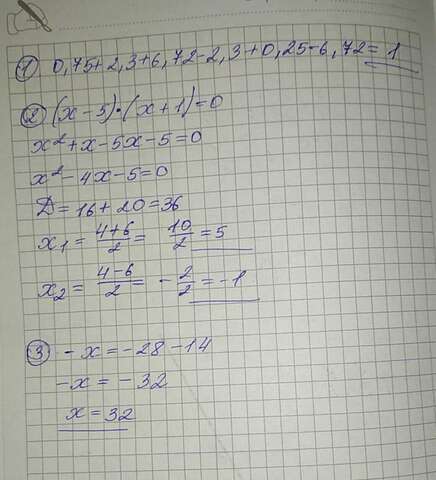 1 0,75+2,3+6,72-2,3+0,25-6,72= 1
2 (x-5)·(x+1)=0
x²+x-5x-5=0
x²-4x-5=0
D=16+20=36
x₁= 4+6/2 = 10/2 =5
x₂= 4-6/2 = -2/2 =-1
3 -x=-28-14
-x= -32
x=32